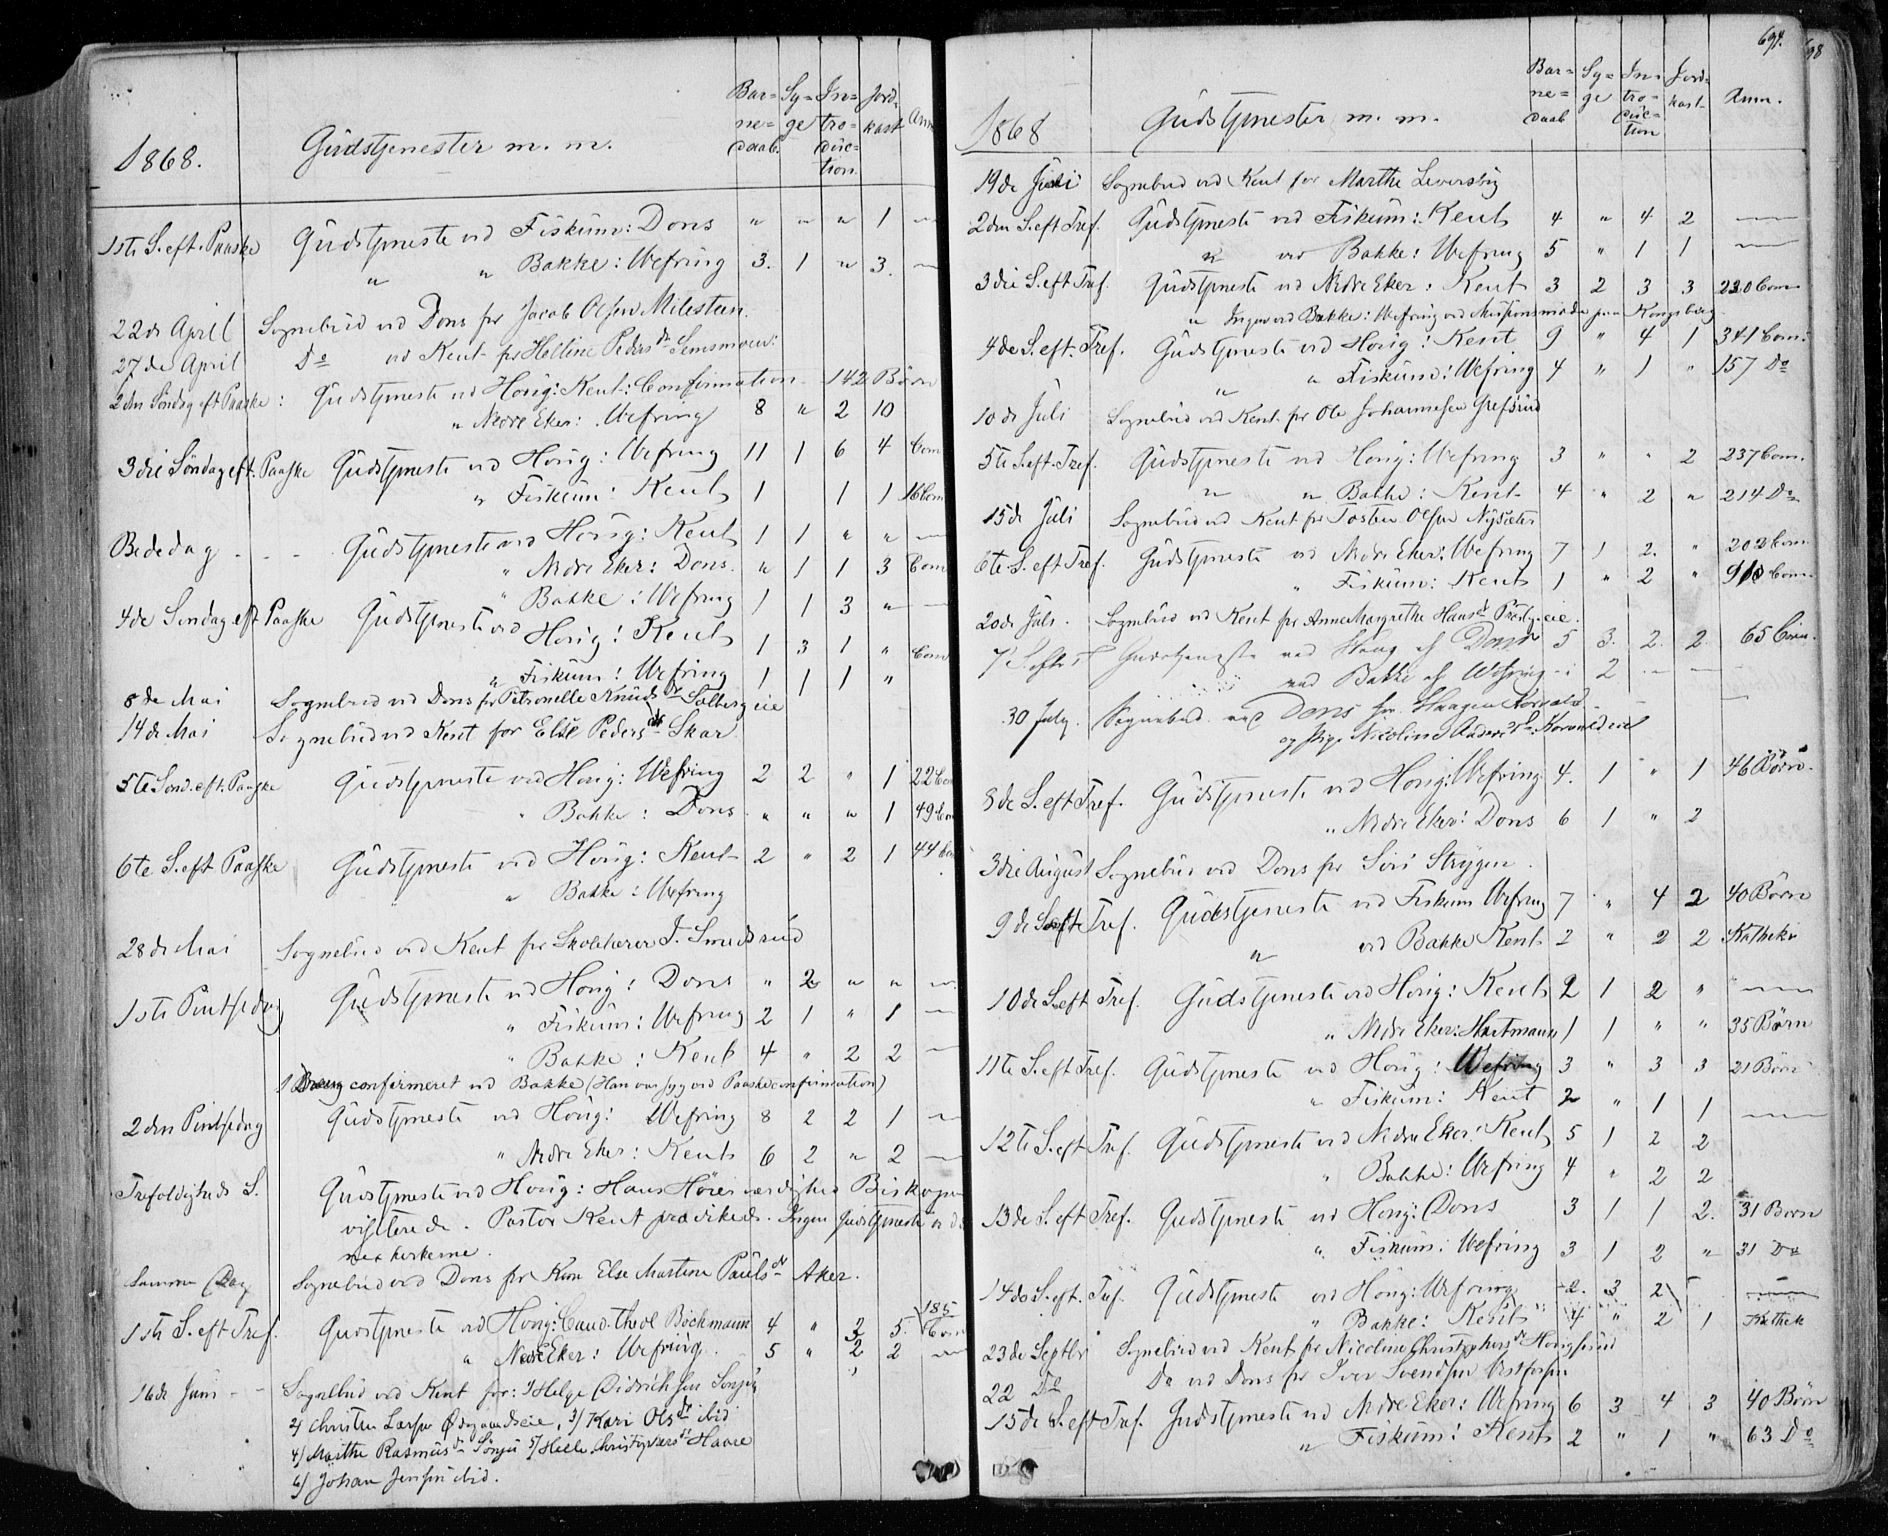 1868. Gudstjenester m. m. Bar= ne= daab. Sy= ge In= tro= duc= tion. Jord= kast Anm
1ste S. eft. Paaske Gudstjeneste ved Fiskum: Dons " " " 1 —
" " Bakke: Wefring 3. 1 " 3. —
22de April Sognebud ved Dons for Jacob Olsen Milesteen.
27de April Do ved Kent for Helline Pedersdr Semsmoen:
2den Søndag eft Paaske: Gudstjeneste ved Houg: Kent: Confirmation 142 Børn
" Nedre Eker: Wefring 8 " 2 10
3die Søndag eft. Paaske Gudstjeneste ved Houg: Wefring 11 1 6 4 Com
" Fiskum: Kent 1 1 1 16 Com
Bededag - - - Gudstjeneste ved Houg: Kent 1 1 " " —
" Nedre Eker: Dons. " 1 1 3 Com
" Bakke: Wefring 1 1 3 " —
4de Søndag eft Paaske Gudstjeneste ved Houg: Kent 1 3 1 " Com
" Fiskum: Wefring 1 1 1 "
8de Mai Sognebud ved Dons for Petronelle Knudsdr Solberg eie
14de Mai Sognebud ved Kent for Else Pedersdr Skar
5te Sønd. eft. Paaske Gudstjeneste ved Houg: Wefring 2 2 " 1 22 Com
" Bakke: Dons. " " " 1 49 Com
6te S. eft Paaske Gudstjeneste ved Houg: Kent 2 " 2 1 44 Com
" Bakke: Wefring
28de Mai Sognebud ved Kent for Skolelærer J. Smedsrud
1ste Pintsedag Gudstjeneste ved Houg: Dons " 2 " " "
" Fiskum: Wefring 2 1 " 1 —
" Bakke: Kent 4 " 2 2 —
1 Dreng confirmeret ved Bakke (Han var syg ved Paaskeconfirmation)
2den Pintsedag Gudstjeneste ved Houg: Wefring 8 2 2 1 —
" Nedre Eker: Kent 6 2 " 2 —
Trefoldigheds S. Gudstjeneste ved Houg: Hans Høiærværdighed Biskopen
visiterede. Pastor Kent prædikede. Ingen Gudstjeneste i de
kirkerne.
Samme Dag Sognebud ved Dons for Else Martine Paulsdr Aker.
1ste S. eft Tref. Gudstjeneste ved Houg: Cand. theol Böckmann 4 " 2 5. 185 Com
" Nedre Eker: Wefring. 5 " 2 2 —
16de Juni - - Sognebud ved Kent for: 1 Helge Didrichsen Sønju
2) Christen Larsen Ødegaardseie, 3) Kari Olsdr ibid
4) Marthe Rasmusdr Sønju 5) Helle Christophersdr Haare
6) Johan Jensen ibid.
694. 98
1868 Gudstjenester m. m. Bar= ne= daab Sy= ge In= tro= duc= tion Jord= kast Anm.
19de Juni Sognebud ved Kent for Marthe Leversby
2den S. eft Tref. Gudstjeneste ved Fiskum: Kent 4 " 4 2 —
" ved Bakke: Wefring 5 " 1 1 —
3die S. eft Tref. Gudstjeneste ved Nedre Eker: Kent 3 2 3 3 220 Com
" Ingen ved Bakke: Wefring ved Missionsmøde paa Kongsberg.
4de S. eft. Tref. Gudstjeneste ved Houg: Kent 9 " 4 1 341 Com.
" " Fiskum: Wefring 4 " 1 " 157 Do
10de Juli Sognebud ved Kent for Ole Johannesen Grefsrud
5te S. eft. Tref. Gudstjeneste ved Houg: Wefring 3 " " 2 237 Com.
" " Bakke: Kent 4 " 2 " 214 Do
15de Juli Sognebud ved Kent for Tosten Olsen Nysæter
6te S. eft Tref. Gudstjeneste ved Nedre Eker: Wefring 7 1 2. " 202 Com.
" Fiskum: Kent 1 " 2 " Com.
20de Juli. Sognebud ved Kent for Anne Margrethe Hansdr Præstg. eie.
7 S. eft. T Gudstjeneste ved Houg af Dons 5 3. 2. 2. 65 Com.
ved Bakke af Wefring 1 2 — —
30 July. Sognebud ved Dons for Haagen Korvald
og Pige Nicoline Andersdr Korvaldeie
8de S. eft Tref. Gudstjeneste ved Houg: Wefring 4. 1 " 1 46 Børn.
" Nedre Eker: Dons 6 1 " 2
3die August Sognebud ved Dons for Siri Strygen.
9de S. eft Tref. Gudstjeneste ved Fiskum Wefring 7 " 4 2 40 Børn
" ved Bakke Kent 2 " 2 2 Katheki
10de S. eft Tref. Gudstjeneste ved Houg: Kent 2 1 2 " —
" Nedre Eker: Hartmann 1 1 " " 35 Børn
11te S. eft Tref. Gudstjeneste ved Houg: Wefring 3 " 3 3 21 Børn
" Fiskum: Kent 2 " 1 1 —
12te S. eft Tref. Gudstjeneste ved Nedre Eker: Kent 5 1 2 2
" Bakke: Wefring 4 " 2 2
13de S. eft Tref. Gudstjeneste ved Houg: Dons 3 1 1 2. 31 Børn
" Fiskum: Wefring 3 1 2 " 31 Do
14de S. eft. Tref. Gudstjeneste ved Houg: Wefring 2. 3 2 —
" Bakke: Kent 4 " 2 1 Kathek
23de Septbr Sognebud ved Kent for Nicoline Christophersdr Hougsrud
22 Do Do ved Dons for Iver Svendsen Vestfossen
15de S. eft Tref. Gudstjeneste ved Nedre Eker: Wefring 6 3 4 3 40 Børn
" Fiskum: Kent 2 " 1 " 63 Do